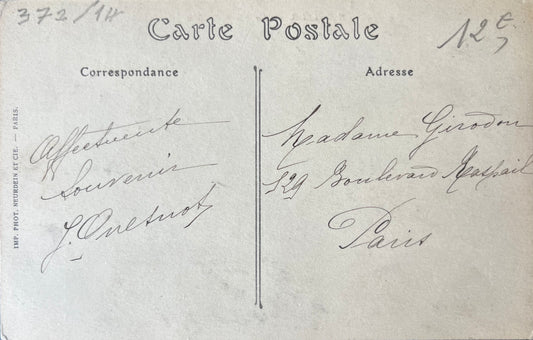 372/14
12€
Carte Postale
Correspondance
Adresse
IMP. PHOT. NEURDEIN ET CIE. — PARIS.
Affectueute
Souvenir
J. Quesnot
Madame Girodon
129 Boulevard Raspail
Paris